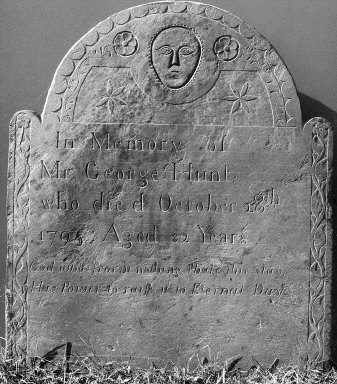 In Memory of
Mr. George Hunt,
who died October
1795, Aged 32 Years
God who from nothing this clay
Has Power to raise it to Eternal Day